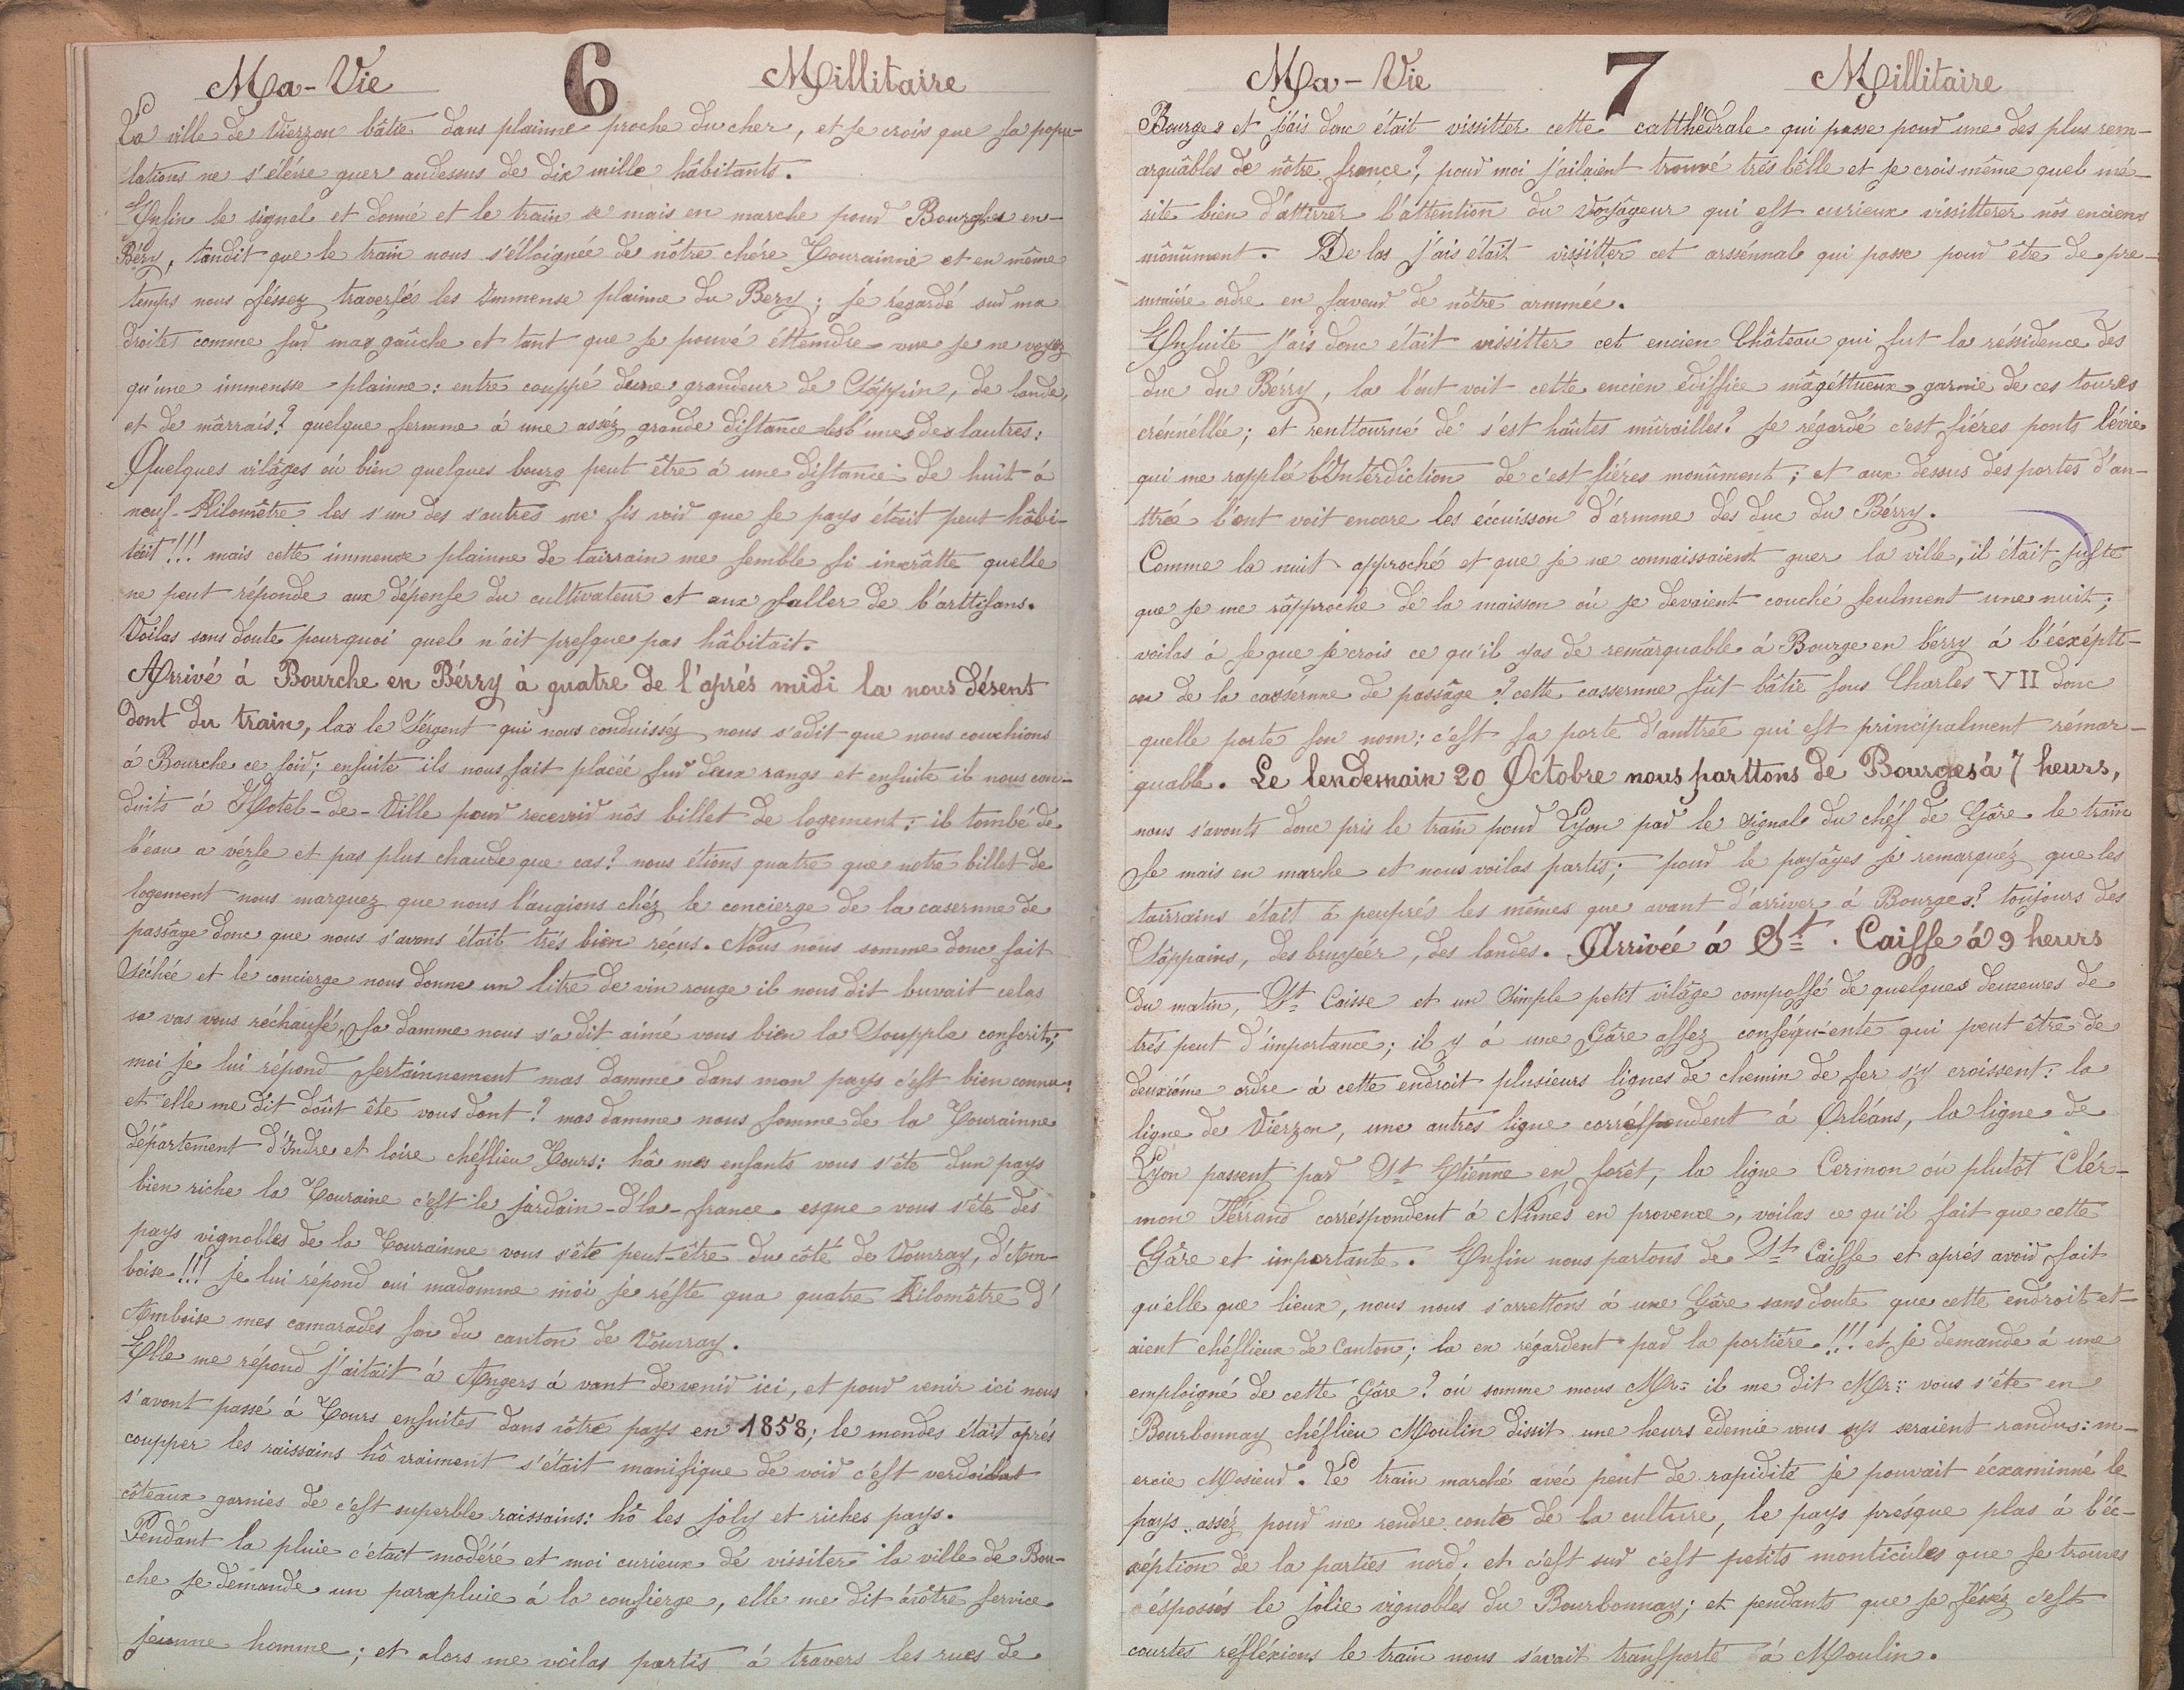 Ma-Vie 6 Millitaire
La ville de Vierzon bâtie dans plainne proche du cher, et je crois que sa popu-
lations ne s'éléve guer audessus de dix mille hâbitants.
Enfin le signal et donné et le train se mais en marche pour Bourghes en-
Béry, tandit que le train nous s'élloignée de nôtre chére Tourainne et en même
temps nous féssez traversés les Immense plainne du Bery; je régardé sud ma
droites comme sud max gâuche et tant que je pouvé éttendre vue je ne voyez
qu'une immensse plainne: entre couppé deune grandeur de Sâppin, de lande,
et de mârrais? quelque fermme à une assez grande distance les unes des lautres:
Quelques vilâges où bien quelques bourg peut être à une distance de huit à
neuf-Kilomêtre les s'un des s'autres me fis void que se pays était peut hâbi-
tait!!! mais cette immense plainne de tairrain me semble si incrâtte quelle
ne peut réponde aux dépense du cultivateur et aux saller de l'arttisans.
Voilas sans doute pourquoi quel n'ait presque pas hâbitait.
Arrivé à Bourche en Bérry à quatre de l'aprés midi la nous désent
dont du train, lax le Sergent qui nous conduissez nous s'adit que nous couchions
à Bourche ce soid; ensuite ils nous fait placée sud deux rangs et ensuite il nous con-
duits à Hotel-de-Ville poud recevrid nôs billet de logement: il tombé de
l'éau a vérse et pas plus chaude que cas? nous étions quatre que notre billet de
logement nous marquez que nous l'augions chéz le concierge de la casernne de
passâge donc que nous s'avons était trés bien réçus. Nous nous somme donc fait
séchée et le concierge nous donne un litre de vin rouge il nous dit buvait celas
sa vas vous réchaufé, sa damme nous s'a dit aimé vous bien la Souppla conscrit;
moi je lui répond sertainnement mas damme dans mon pays c'est bien connu:
et elle me dit dôut ête vous dont? mas damme nous somme de la Tourainne
département d'Indre et loire chéflieu Tours: hâ mes enfants vous s'ête dun pays
bien riche la Touraine c'est le jardain-d'la-france. esque vous s'ête des
pays vignobles de la Tourainne vous s'ête peut-être du côté de Vouvray, d'Am-
boise!!! je lui répond oui madamme moi je réste qua quatre Kilomêtre d'
Amboise mes camarades son du canton de Vouvray.
Elle me répond j'aitait à Angers à vant de venid ici, et poud venir ici nous
s'avont passé à Tours ensuites dans vôtre pays en 1858; le mondes était aprés
coupper les raissains hô vraiment s'était manifique de void c'est verdoidant
côteaux garnies de c'est superble raissains: hô les joly et riches pays.
Pendant la pluie c'était modéré et moi curieux dé vissiter la ville de Bou-
che je demande un parapluie à la consierge, elle me dit àvôtre service
jeunne homme; et alors me voilas partis à travers les rues de
Ma-Vie 7 Millitaire
Bourges et j'ais donc était vissitter cette catthédrale qui passe poud une des plus rem-
arquâbles de nôtre france?, poud moi j'ailaient trouvé trés bêlle et je crois même quel mé-
rite bien d'attirrer l'attention du voyâgeur qui est curieux vissitterer nôs enciens
mônûment. De las j'ais était vissitter cet arssénnal qui passe poud être de pre-
mmiére ordre en faveud de nôtre armmée.
Ensuite J'ais donc était vissitter cet encien Château qui fut la réssidence des
duc du Bérry, la l'ont voit cette encien édiffice mâgéttueux garnie de ces toures
crénnéllée; et renttourné de s'ést hâutes mûrailles? je régardé c'est fiéres ponts l'évie
qui me rapplée l'Intérdiction de c'est fiéres monûment; et aux dessus des portes d'an-
ttrée l'ont voit encore les éccuisson d'armme des duc du Bérry.
Comme la nuit approché et que je ne connaissaient guer la ville, il était juste
que je me râpproche de la maisson où je devaient couché seulment une nuit;
voilas à se que je crois ce qu'il yas de remârquable à Bourge en bérry à l'écxépti-
on de la cassérnne de passâge? cette cassernne fût bâtie sous Charles VII donc
quelle porte son nom: c'est sa porte d'anttrée qui est principalment rémar-
quable. Le lendemain 20 Octobre nous parttons de Bourges à 7 heurs,
nous s'avonts donc pris le train poud Lyon pad le signal du chéf de Gâre le train
se mais en marche et nous voilas partis; poud le payâges je remarquéz que les
tairrains était à peuprés les mêmes que avant d'arriver à Bourges? toujours des
Sâppains, des bruyéer, des landes. Arrivée à St. Caisse à 9 heurs
du matin, St Caisse et un simple petit vilâge compossé de quelques demeures de
trés peut d'importance; il y à une Gâre assez conséqu-ente qui peut être de
deuxiéme ordre à cette endroit plusieurs lignes de chemin de fer s'y croissent: la
ligne de Vierzon, une autres ligne corréspondent à Orléans, la ligne de
Lyon passent pad St Etiénne en forêt, la ligne Cermon où plutôt Clér-
mon Férrand corréspondent à Nîmes en provence, voilas ce qu'il fait que cette
Gâre et importante. Enfin nous partons de St Caisse et aprés avoid fait
qu'elle que lieux, nous nous s'arrettons à une Gâre sans doute que cette endroit et-
aient chéflieux de Canton; la en régardent pad la portiére!!! et je demande à une
emploigné de cette Gâre? où somme mous Mr: il me dit Mr: vous s'ête en
Bourbonnay chéflieu Moulin dissit une heurs édemie vous sys seraient randus: m-
ercie Mosieud. Le train marché avéc peut de rapidité je pouvait écxaminné le
pays assez poud me rendre conte de la culture, le pays présque plas à l'éc-
xéption de la parties nord; et c'est sud c'est petits monticules que se trouves
éspossés le jolie vignobles du Bourbonnay; et pendants que je féséz c'est
courtes réfléxions le train nous s'avait transporté à Moulin.